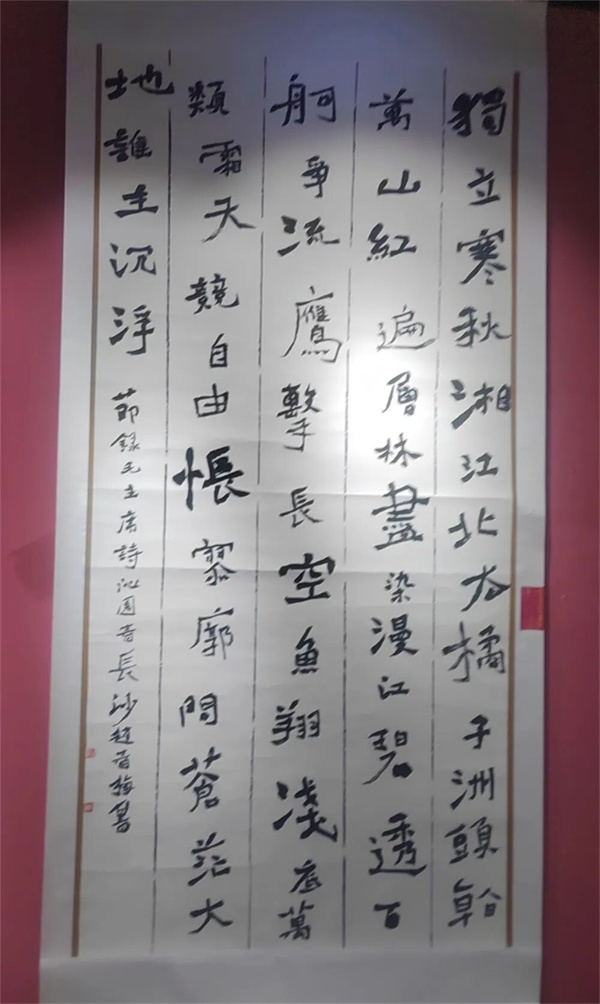 獨立寒秋湘江北去橘子洲頭看
萬山紅遍層林盡染漫江碧透百
舸爭流鷹擊長空魚翔淺底萬
類霜天競自由悵寥廓問蒼茫大
地誰主沉浮 節錄毛主席詩沁園春長沙趙春梅書